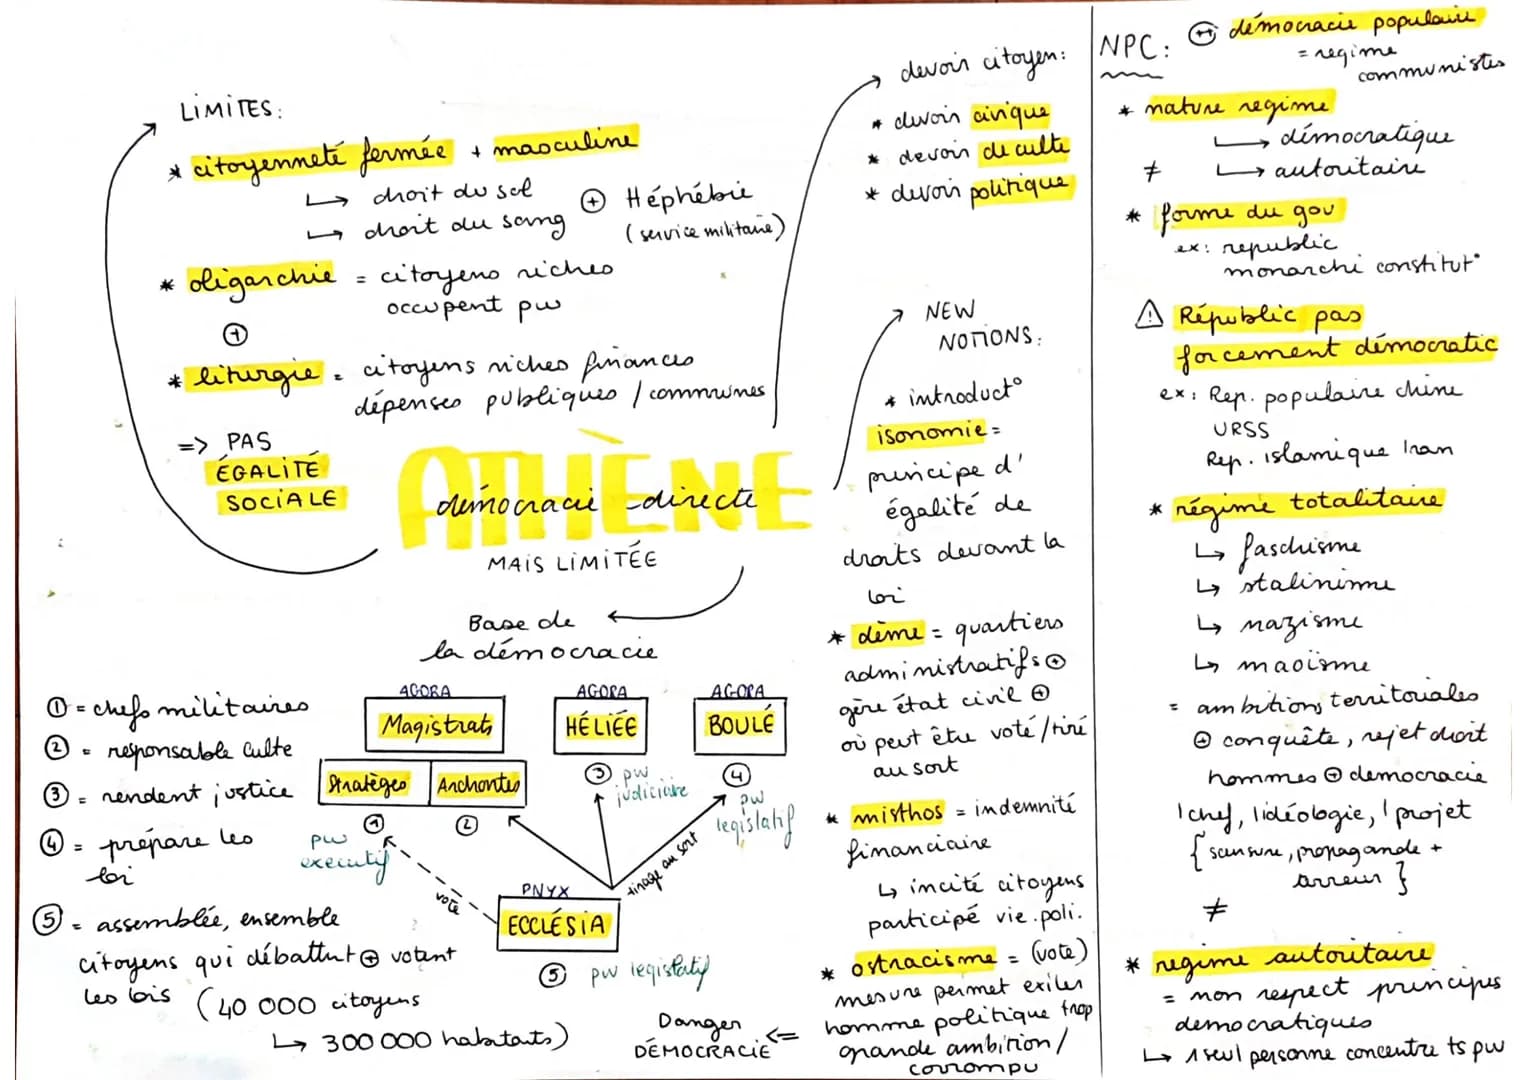 LIMITES:
* citoyenneté fermée + masculine
↳ droit du sol
↳ droit du sang
⊕ Héphébie
(service militaire)
* oligarchie = citoyens riches
occupent pw
⊕
* liturgie = citoyens riches finances
dépenses publiques / communes
=> PAS
ÉGALITÉ
SOCIALE
ATHÈNE
démocracie directe
MAIS LIMITÉE
devoir citoyen:
* devoir civique
* devoir de culte
* devoir politique
NEW
NOTIONS:
* introduct°
isonomie =
principe d'
égalité de
droits devant la
loi
* dème = quartiers
administratifs ⊕
gère état civil ⊕
où peut être voté / tiré
au sort
* misthos = indemnité
financiaire
↳ incité citoyens
participé vie.poli.
* ostracisme = (vote)
mesure permet exiler
homme politique trop
grande ambition /
corrompu
<= Danger
DÉMOCRACIE
Base de
la démocracie
① = chefs militaires
② = responsable culte
③ = rendent justice
④ = prépare les
loi
⑤ = assemblée, ensemble
citoyens qui débattent ⊕ votent
les lois (40 000 citoyens
↳ 300 000 habitants)
AGORA
Magistrats
Stratèges
Archontes
①
②
pw
executif
AGORA
HÉLIÉE
③ pw
judiciaire
AGORA
BOULÉ
④
pw
legislatif
vote
tirage au sort
PNYX
ECCLÉSIA
⑤ pw legislatif
NPC: ⊕ démocracie populaire
= regime
communistes
* nature regime
↳ démocratique
≠ ↳ autoritaire
* forme du gov
ex: republic
monarchi constitut°
⚠ Républic pas
forcement démocratic
ex: Rep. populaire chine
URSS
Rep. islamique Iran
* régime totalitaire
↳ faschisme
↳ stalinisme
↳ nazisme
↳ maoïsme
= ambitions territoriales
⊕ conquête, rejet droit
hommes ⊕ democracie
1 chef, 1 idéologie, 1 projet
{ sensure, propagande +
terreur }
≠
* regime autoritaire
= non respect principes
democratiques
↳ 1 seul personne concentre ts pw